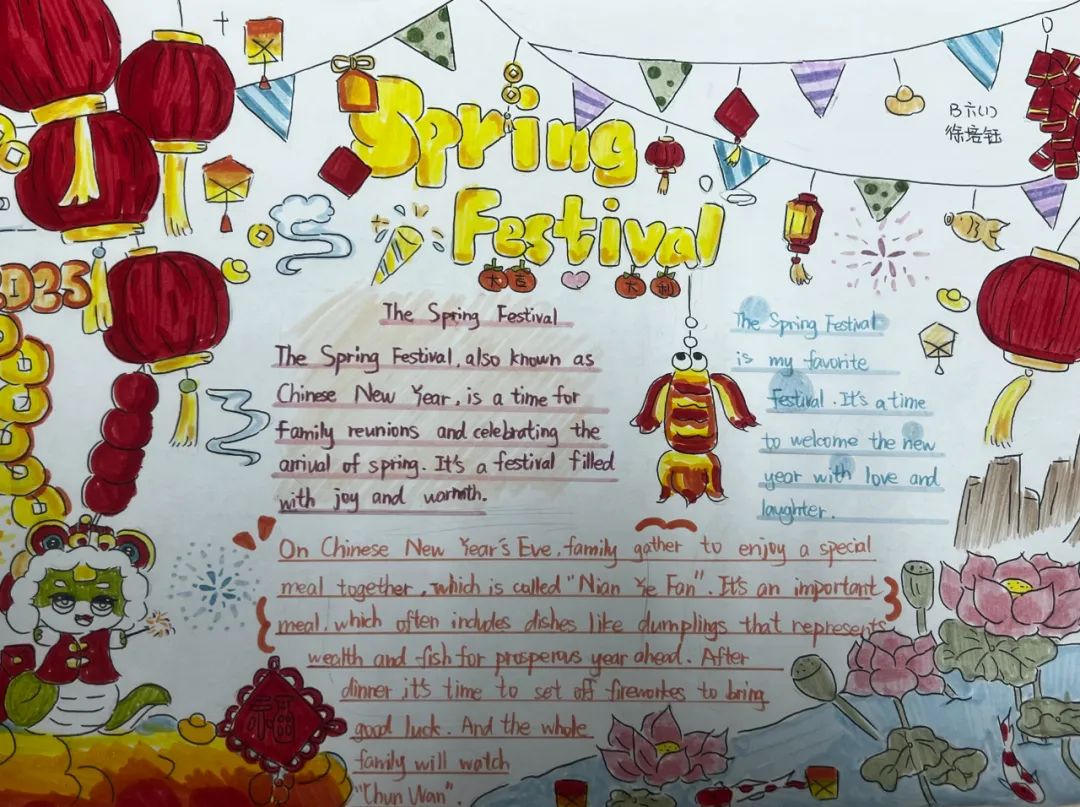 Spring
Festival
B六(1)
徐培钰
2025
大吉
大利
The Spring Festival
The Spring Festival, also known as
Chinese New Year, is a time for
family reunions and celebrating the
arrival of spring. It's a festival filled
with joy and warmth.
The Spring Festival
is my favorite
festival. It's a time
to welcome the new
year with love and
laughter.
On Chinese New Year's Eve, family gather to enjoy a special
meal together, which is called "Nian Ye Fan". It's an important
meal, which often includes dishes like dumplings that represents
wealth and fish for prosperous year ahead. After
dinner, it's time to set off fireworkes to bring
good luck. And the whole
family will watch
"Chun Wan".
福